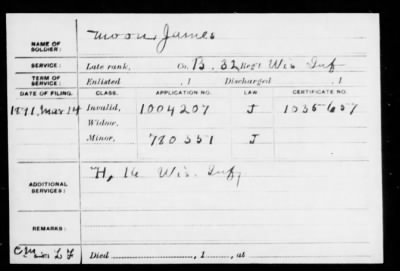 NAME OF SOLDIER: Moon, James
SERVICE: Late rank, Co. B. 32 Reg't Wis Inf
TERM OF SERVICE: Enlisted , 1 Discharged , 1
DATE OF FILING. CLASS. APPLICATION NO. LAW CERTIFICATE NO.
1891 Mar 14 Invalid, 1004207 J 1035657
Widow,
Minor, 780551 J
ADDITIONAL SERVICES: H, 16 Wis. Inf,
REMARKS:
Died , 1 , at